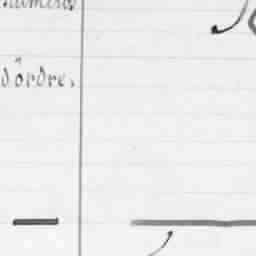 numéros
d'ordre.